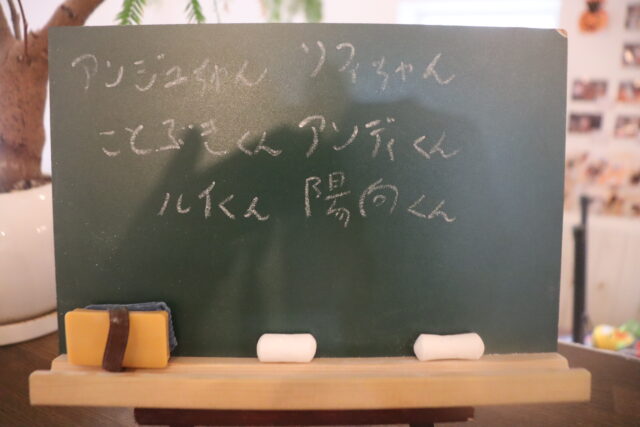 アンジュちゃん ソフィちゃん
ことぶきくん アンディくん
ルイくん 陽向くん